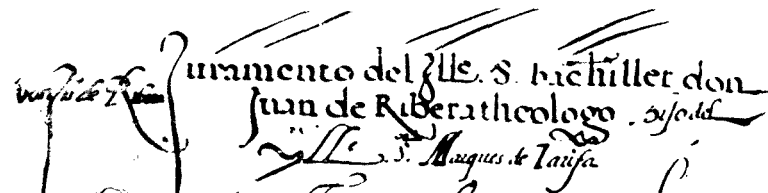 Juramento del Jlle. S. bachiller don
Juan de Ribera theologo. hijo del
Ylle. S. Marques de Tarifa